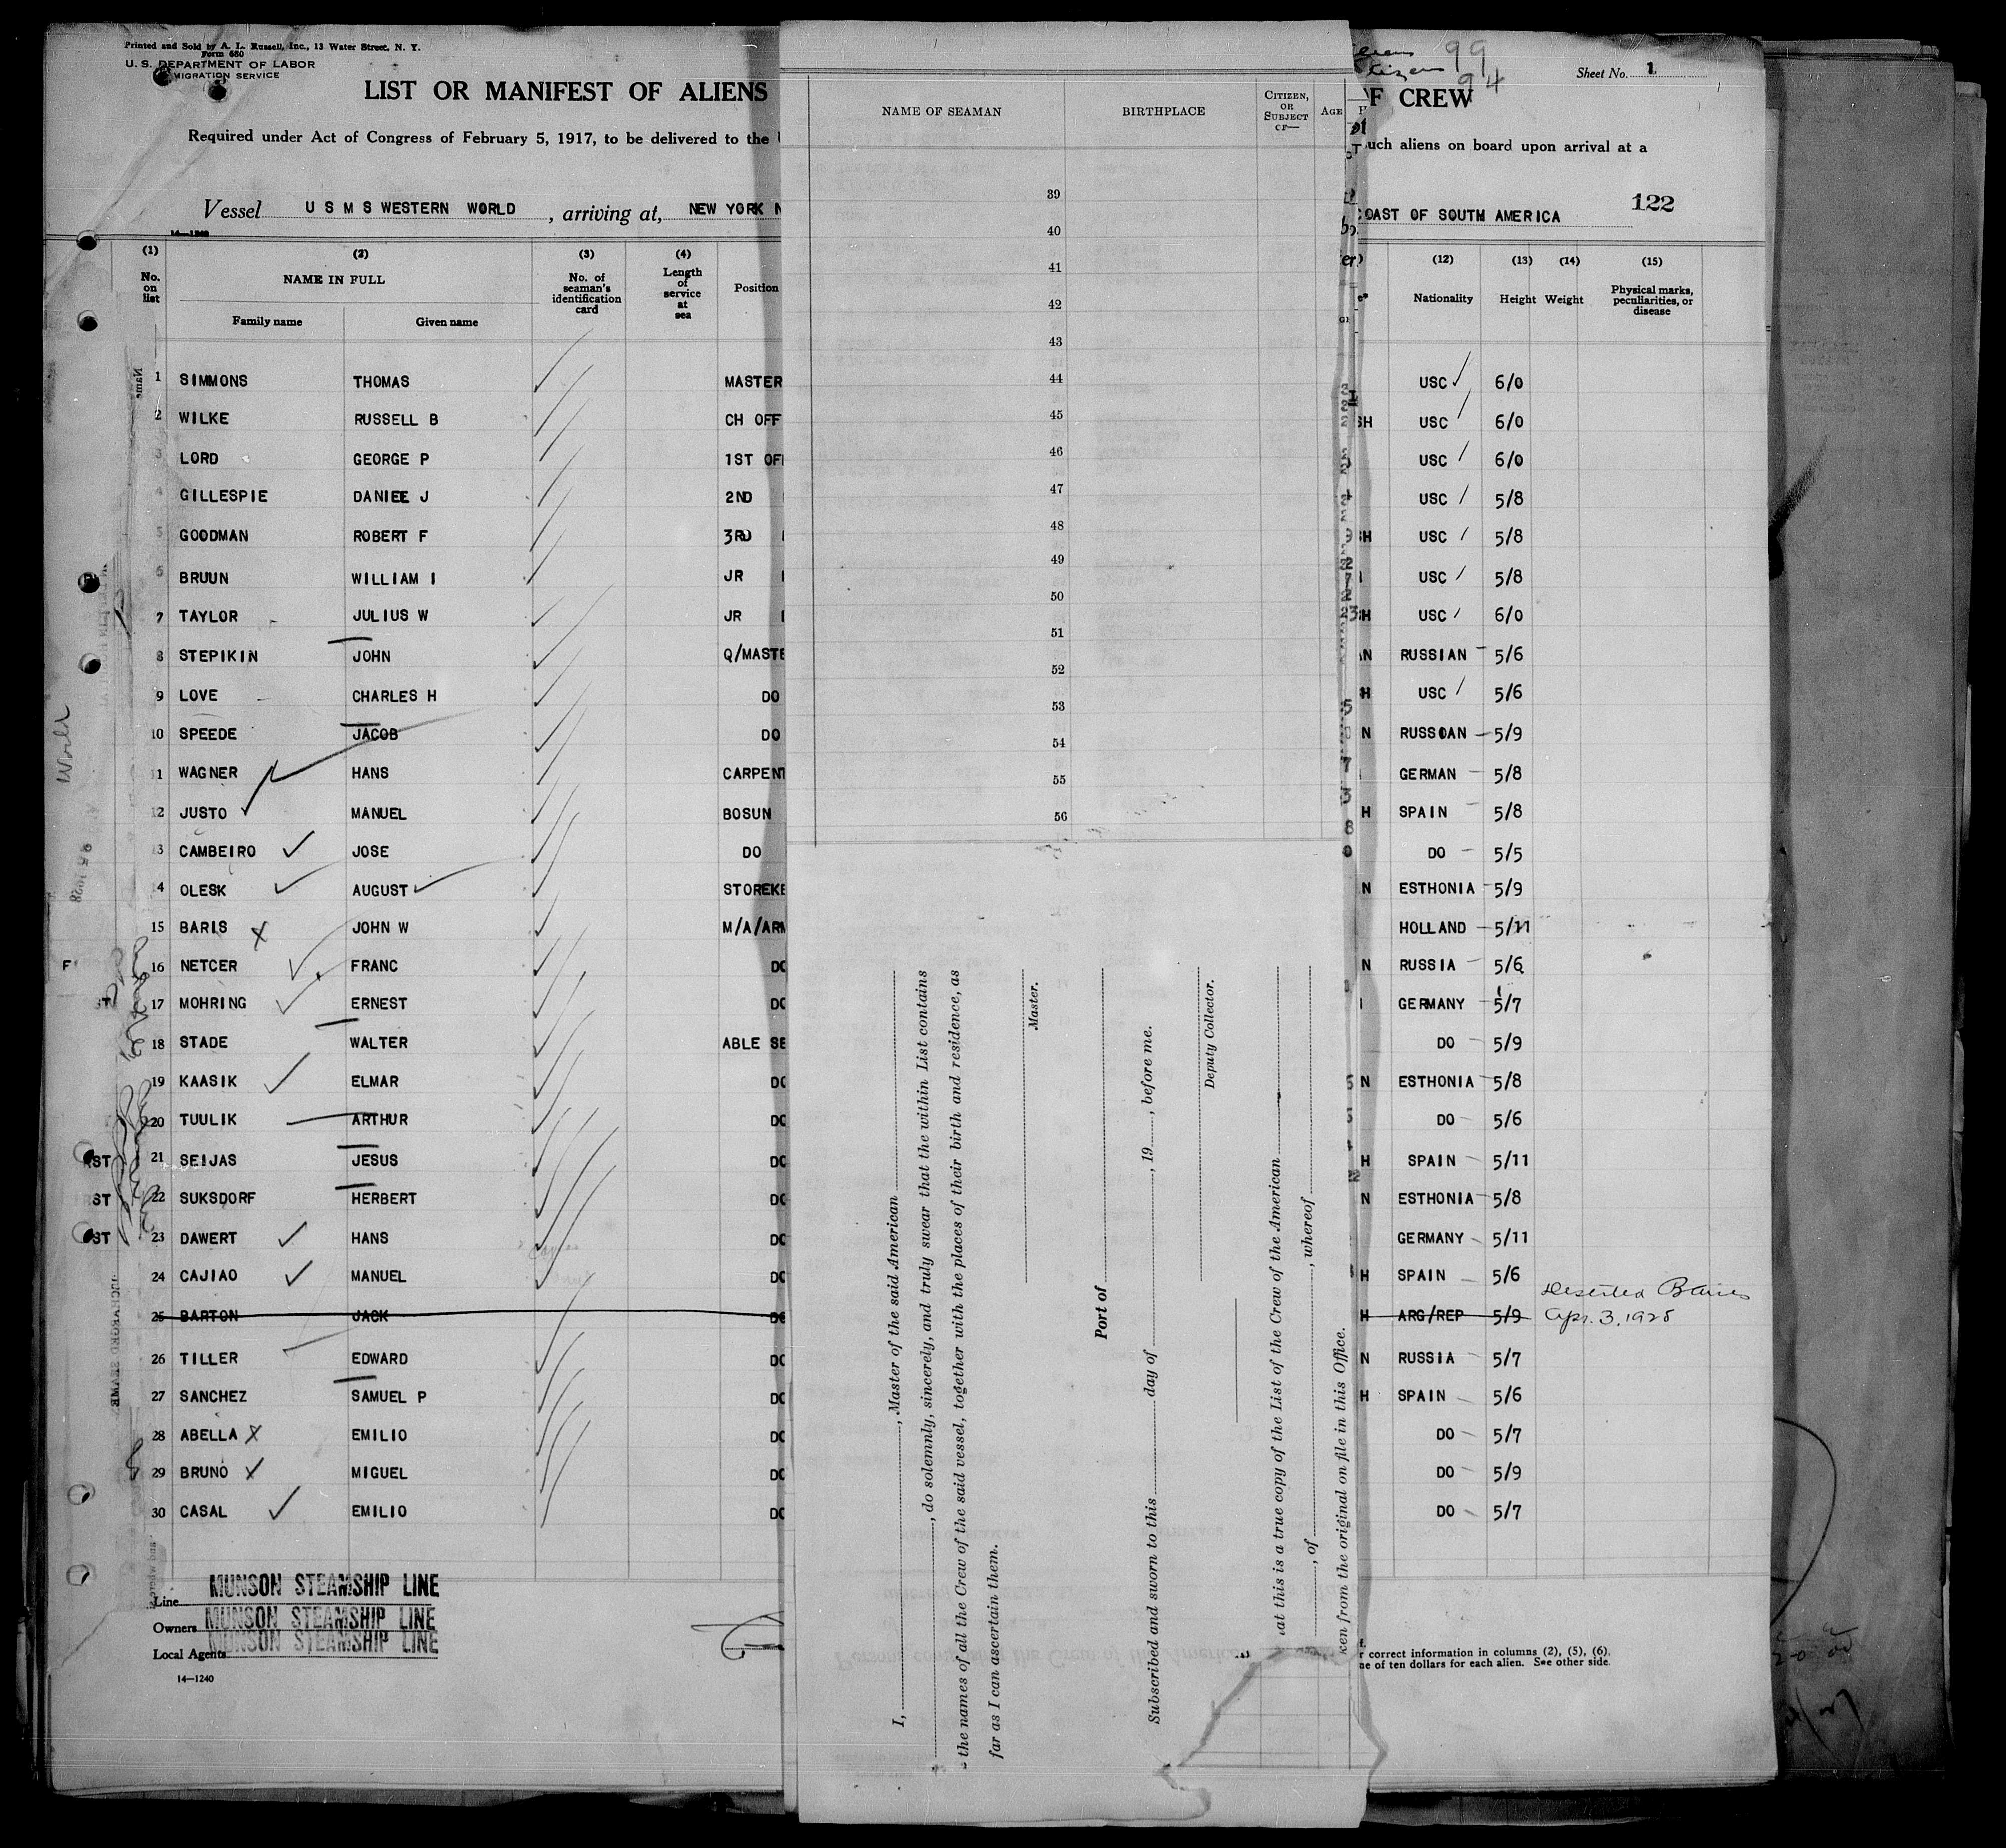 Printed and Sold by A. L. Russell, Inc., 13 Water Street, N. Y.
Form 680
U. S. DEPARTMENT OF LABOR
MIGRATION SERVICE
99
94
Sheet No. 1
LIST OR MANIFEST OF ALIENS
OF CREW
Required under Act of Congress of February 5, 1917, to be delivered to the
such aliens on board upon arrival at a
Vessel U S M S WESTERN WORLD, arriving at, NEW YORK N
COAST OF SOUTH AMERICA
122
14—1240
(1) (2) (3) (4) (12) (13) (14) (15)
No. on list NAME IN FULL No. of seaman's identification card Length of service at sea Position Nationality Height Weight Physical marks, peculiarities, or disease
Family name Given name
1 SIMMONS THOMAS MASTER USC 6/0
2 WILKE RUSSELL B CH OFF USC 6/0
3 LORD GEORGE P 1ST OF USC 6/0
4 GILLESPIE DANIEE J 2ND USC 5/8
5 GOODMAN ROBERT F 3RD USC 5/8
6 BRUUN WILLIAM I JR USC 5/8
7 TAYLOR JULIUS W JR USC 6/0
8 STEPIKIN JOHN Q/MASTE RUSSIAN 5/6
9 LOVE CHARLES H DO USC 5/6
10 SPEEDE JACOB DO RUSSOAN 5/9
11 WAGNER HANS CARPENT GERMAN 5/8
12 JUSTO MANUEL BOSUN SPAIN 5/8
13 CAMBEIRO JOSE DO DO 5/5
14 OLESK AUGUST STOREKE ESTHONIA 5/9
15 BARIS JOHN W M/A/ARM HOLLAND 5/11
16 NETCER FRANC DO RUSSIA 5/6
17 MOHRING ERNEST DO GERMANY 5/7
18 STADE WALTER ABLE SE DO 5/9
19 KAASIK ELMAR DO ESTHONIA 5/8
20 TUULIK ARTHUR DO DO 5/6
21 SEIJAS JESUS DO SPAIN 5/11
22 SUKSDORF HERBERT DO ESTHONIA 5/8
23 DAWERT HANS DO GERMANY 5/11
24 CAJIAO MANUEL DO SPAIN 5/6
25 BARTON JACK DO ARG/REP 5/9 Deserted B Aires
Apr. 3, 1928
26 TILLER EDWARD DO RUSSIA 5/7
27 SANCHEZ SAMUEL P DO SPAIN 5/6
28 ABELLA EMILIO DO DO 5/7
29 BRUNO MIGUEL DO DO 5/9
30 CASAL EMILIO DO DO 5/7
World
Line MUNSON STEAMSHIP LINE
Owners MUNSON STEAMSHIP LINE
Local Agents MUNSON STEAMSHIP LINE
14—1240
r correct information in columns (2), (5), (6).
ne of ten dollars for each alien. See other side.
NAME OF SEAMAN BIRTHPLACE CITIZEN, OR SUBJECT OF— AGE
39
40
41
42
43
44
45
46
47
48
49
50
51
52
53
54
55
56
I, , Master of the said American
, do solemnly, sincerely, and truly swear that the within List contains
the names of all the Crew of the said vessel, together with the places of their birth and residence, as
far as I can ascertain them.
Master.
Port of
Subscribed and sworn to this day of , 19 , before me.
Deputy Collector.
at this is a true copy of the List of the Crew of the American
, of , whereof
ken from the original on file in this Office.